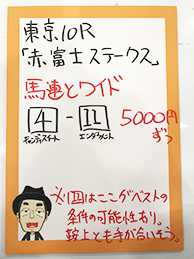 東京10R
「赤富士ステークス」
馬連とワイド
4 - 11 5000円
ずつ
キャンディスイート エンダウメント
※11はここがベストの
条件の可能性あり。
鞍上とも手が合いそう。